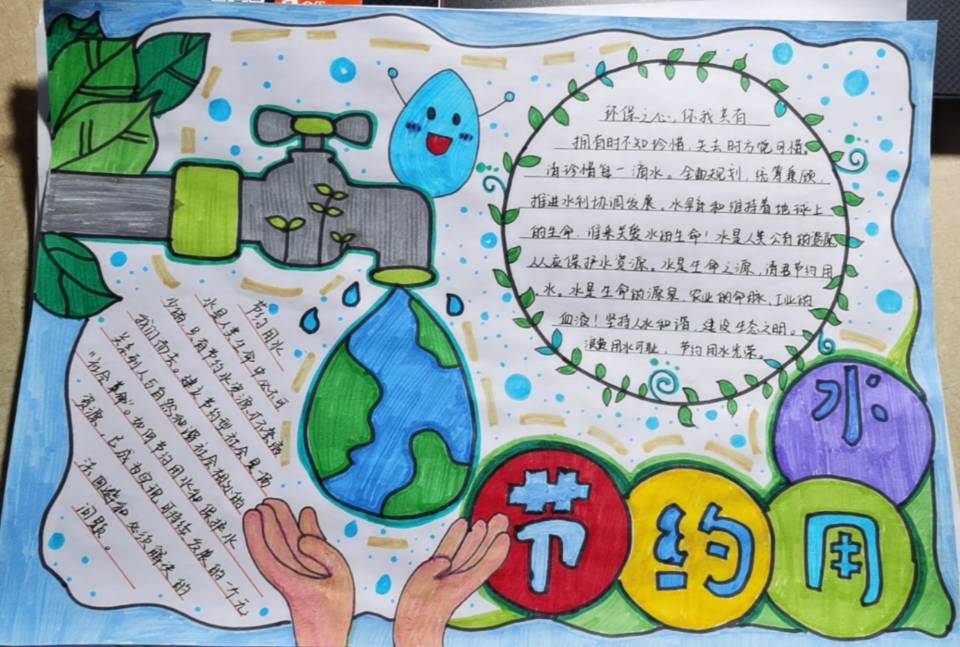 环保之心,你我共有
拥有时不知珍惜,失去时方觉可惜,
请珍惜每一滴水。全面规划,统筹兼顾,
推进水利协调发展。水孕育和维持着地球上
的生命,谁来关爱水的生命!水是人类公有的资源
人人应保护水资源。水是生命之源,请君节约用
水。水是生命的源泉、农业的命脉、工业的
血液!坚持人水和谐,建设生态文明。
浪费用水可耻,节约用水光荣。
节约用水
水是人类生命中必不可
少的,只有节约水资源才不会危
我们而去。建立节约型社会是有
关系到人与自然和谐社会相处的
"社会革命"。发用节约用水和保护水
资源,已成为实现可持续发展的一个元
法回避和必须解决的
问题。
节约用水